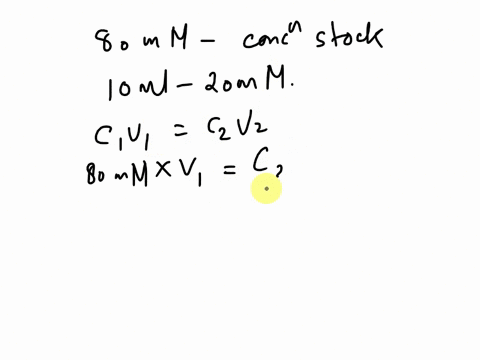 80 mM – concⁿ stock
10 ml – 20 mM.
C₁V₁ = C₂V₂
80 mM × V₁ = C₂